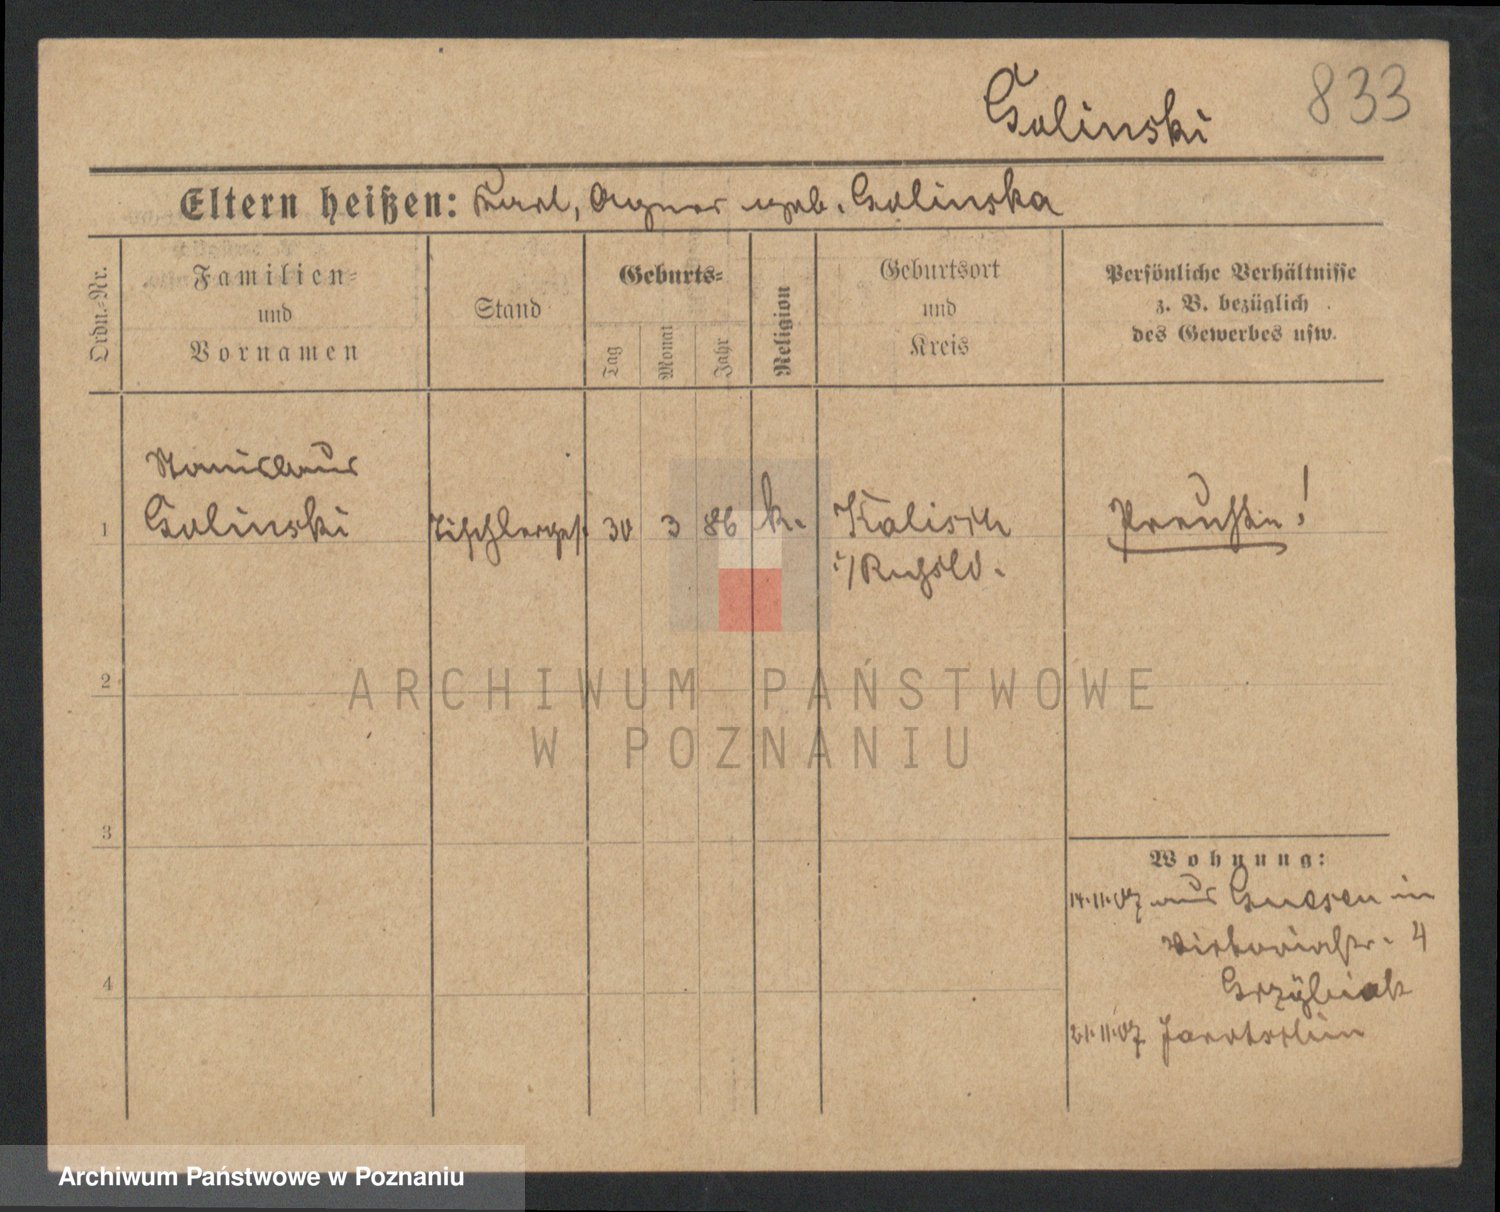 Golinski 833
Eltern heißen: Karl, Agnes geb. Golinska
Ordn.-Nr.
Familien-
und
Vornamen
Stand
Geburts-
Tag
Monat
Jahr
Religion
Geburtsort
und
Kreis
Persönliche Verhältnisse
z. B. bezüglich
des Gewerbes usw.
Stanislaus
1 Golinski Tischlerges. 30 3 86 k. Kalisch Preuße!
i/Rußld.
2
ARCHIWUM PAŃSTWOWE
W POZNANIU
3
Wohnung:
14.11.07 aus Gnesen in
Viktoriastr. 4
4 Grzybiak
21.11.07 Jarotschin
Archiwum Państwowe w Poznaniu